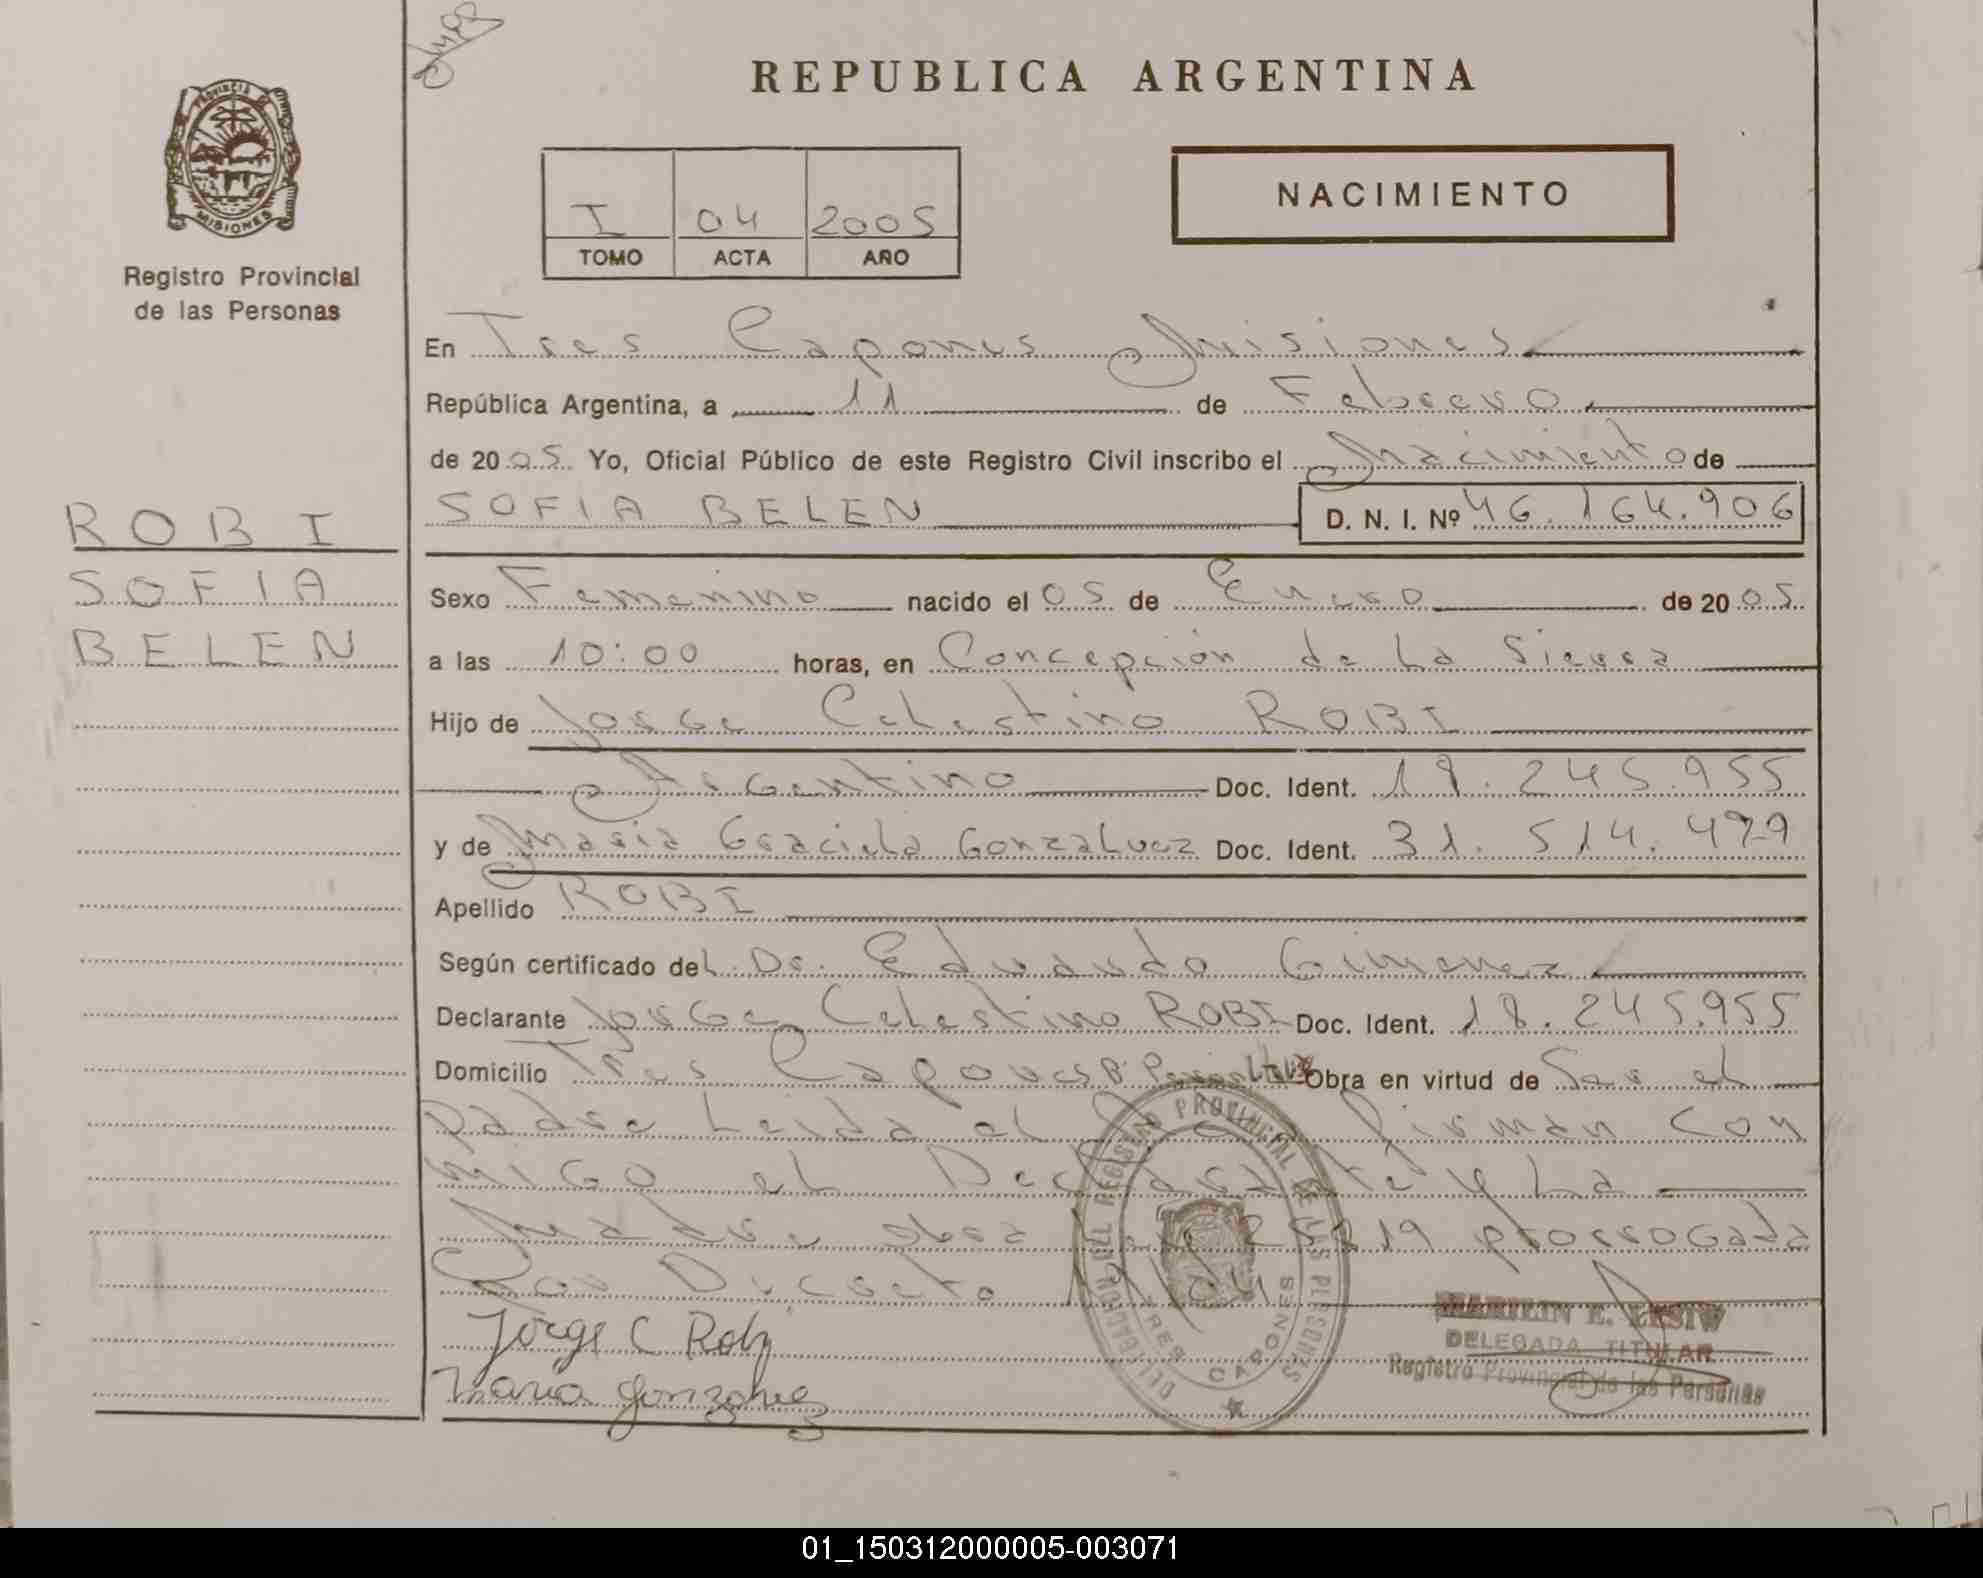 REPUBLICA ARGENTINA
PROVINCIA DE MISIONES
Registro Provincial
de las Personas
I 04 2005
TOMO ACTA AÑO
NACIMIENTO
En Tres Capones Misiones
República Argentina, a 11 de Febrero
de 2005 Yo, Oficial Público de este Registro Civil inscribo el Nacimiento de
SOFIA BELEN D. N. I. Nº 46.164.906
ROBI
SOFIA
BELEN
Sexo Femenino nacido el 05 de Enero de 2005
a las 10:00 horas, en Concepción de La Sierra
Hijo de Jorge Celestino ROBI
Argentino Doc. Ident. 18.245.955
y de Maria Graciela Gonzalvez Doc. Ident. 31.514.479
Apellido ROBI
Según certificado del Dr. Eduardo Gimenez
Declarante Jorge Celestino ROBI Doc. Ident. 18.245.955
Domicilio Tres Capones Obra en virtud de Ser el
padre Leida el firman con
migo el Declarante y La
Madre obra prorrogada
Por Decreto
Jorge C Robi
Maria Gonzalvez
DELEGACION DEL REGISTRO PROVINCIAL DE LAS PERSONAS
TRES CAPONES
MARILIN E. LESIW
DELEGADA TITULAR
Registro Provincial de las Personas
01_150312000005-003071